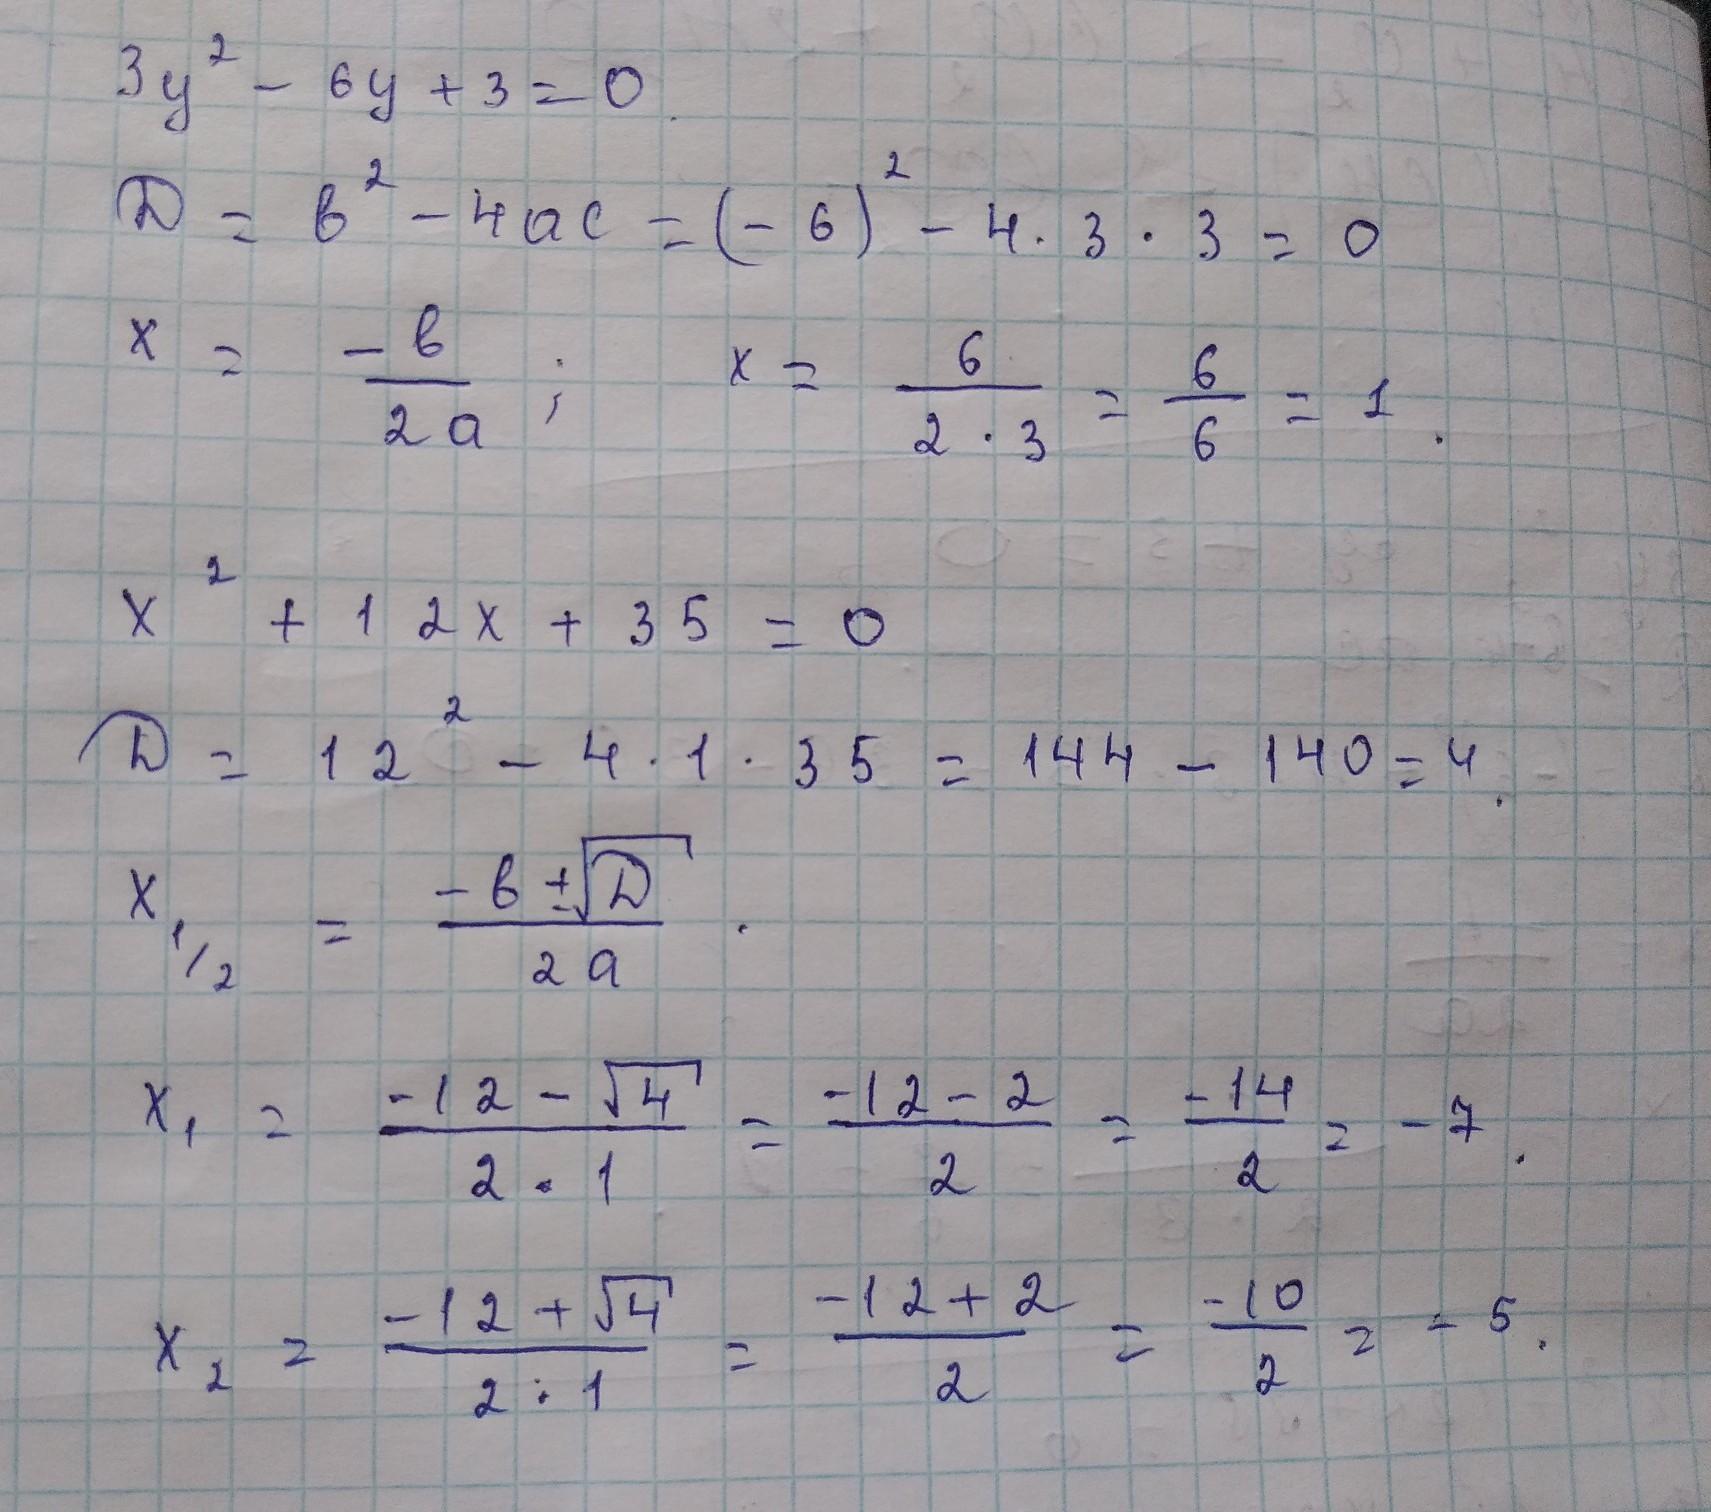 3y² - 6y + 3 = 0
D = b² - 4ac = (-6)² - 4 · 3 · 3 = 0
x = -b/2a ; x = 6/2·3 = 6/6 = 1.
x² + 12x + 35 = 0
D = 12² - 4 · 1 · 35 = 144 - 140 = 4.
x₁/₂ = -b ± √D / 2a .
x₁ = -12 - √4 / 2 · 1 = -12 - 2 / 2 = -14/2 = -7.
x₂ = -12 + √4 / 2 · 1 = -12 + 2 / 2 = -10/2 = -5.